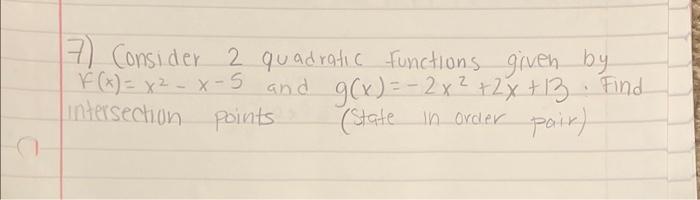 7) Consider 2 quadratic functions given by
f(x) = x² - x - 5 and g(x) = -2x² + 2x + 13. Find
intersection points (State in order pair)